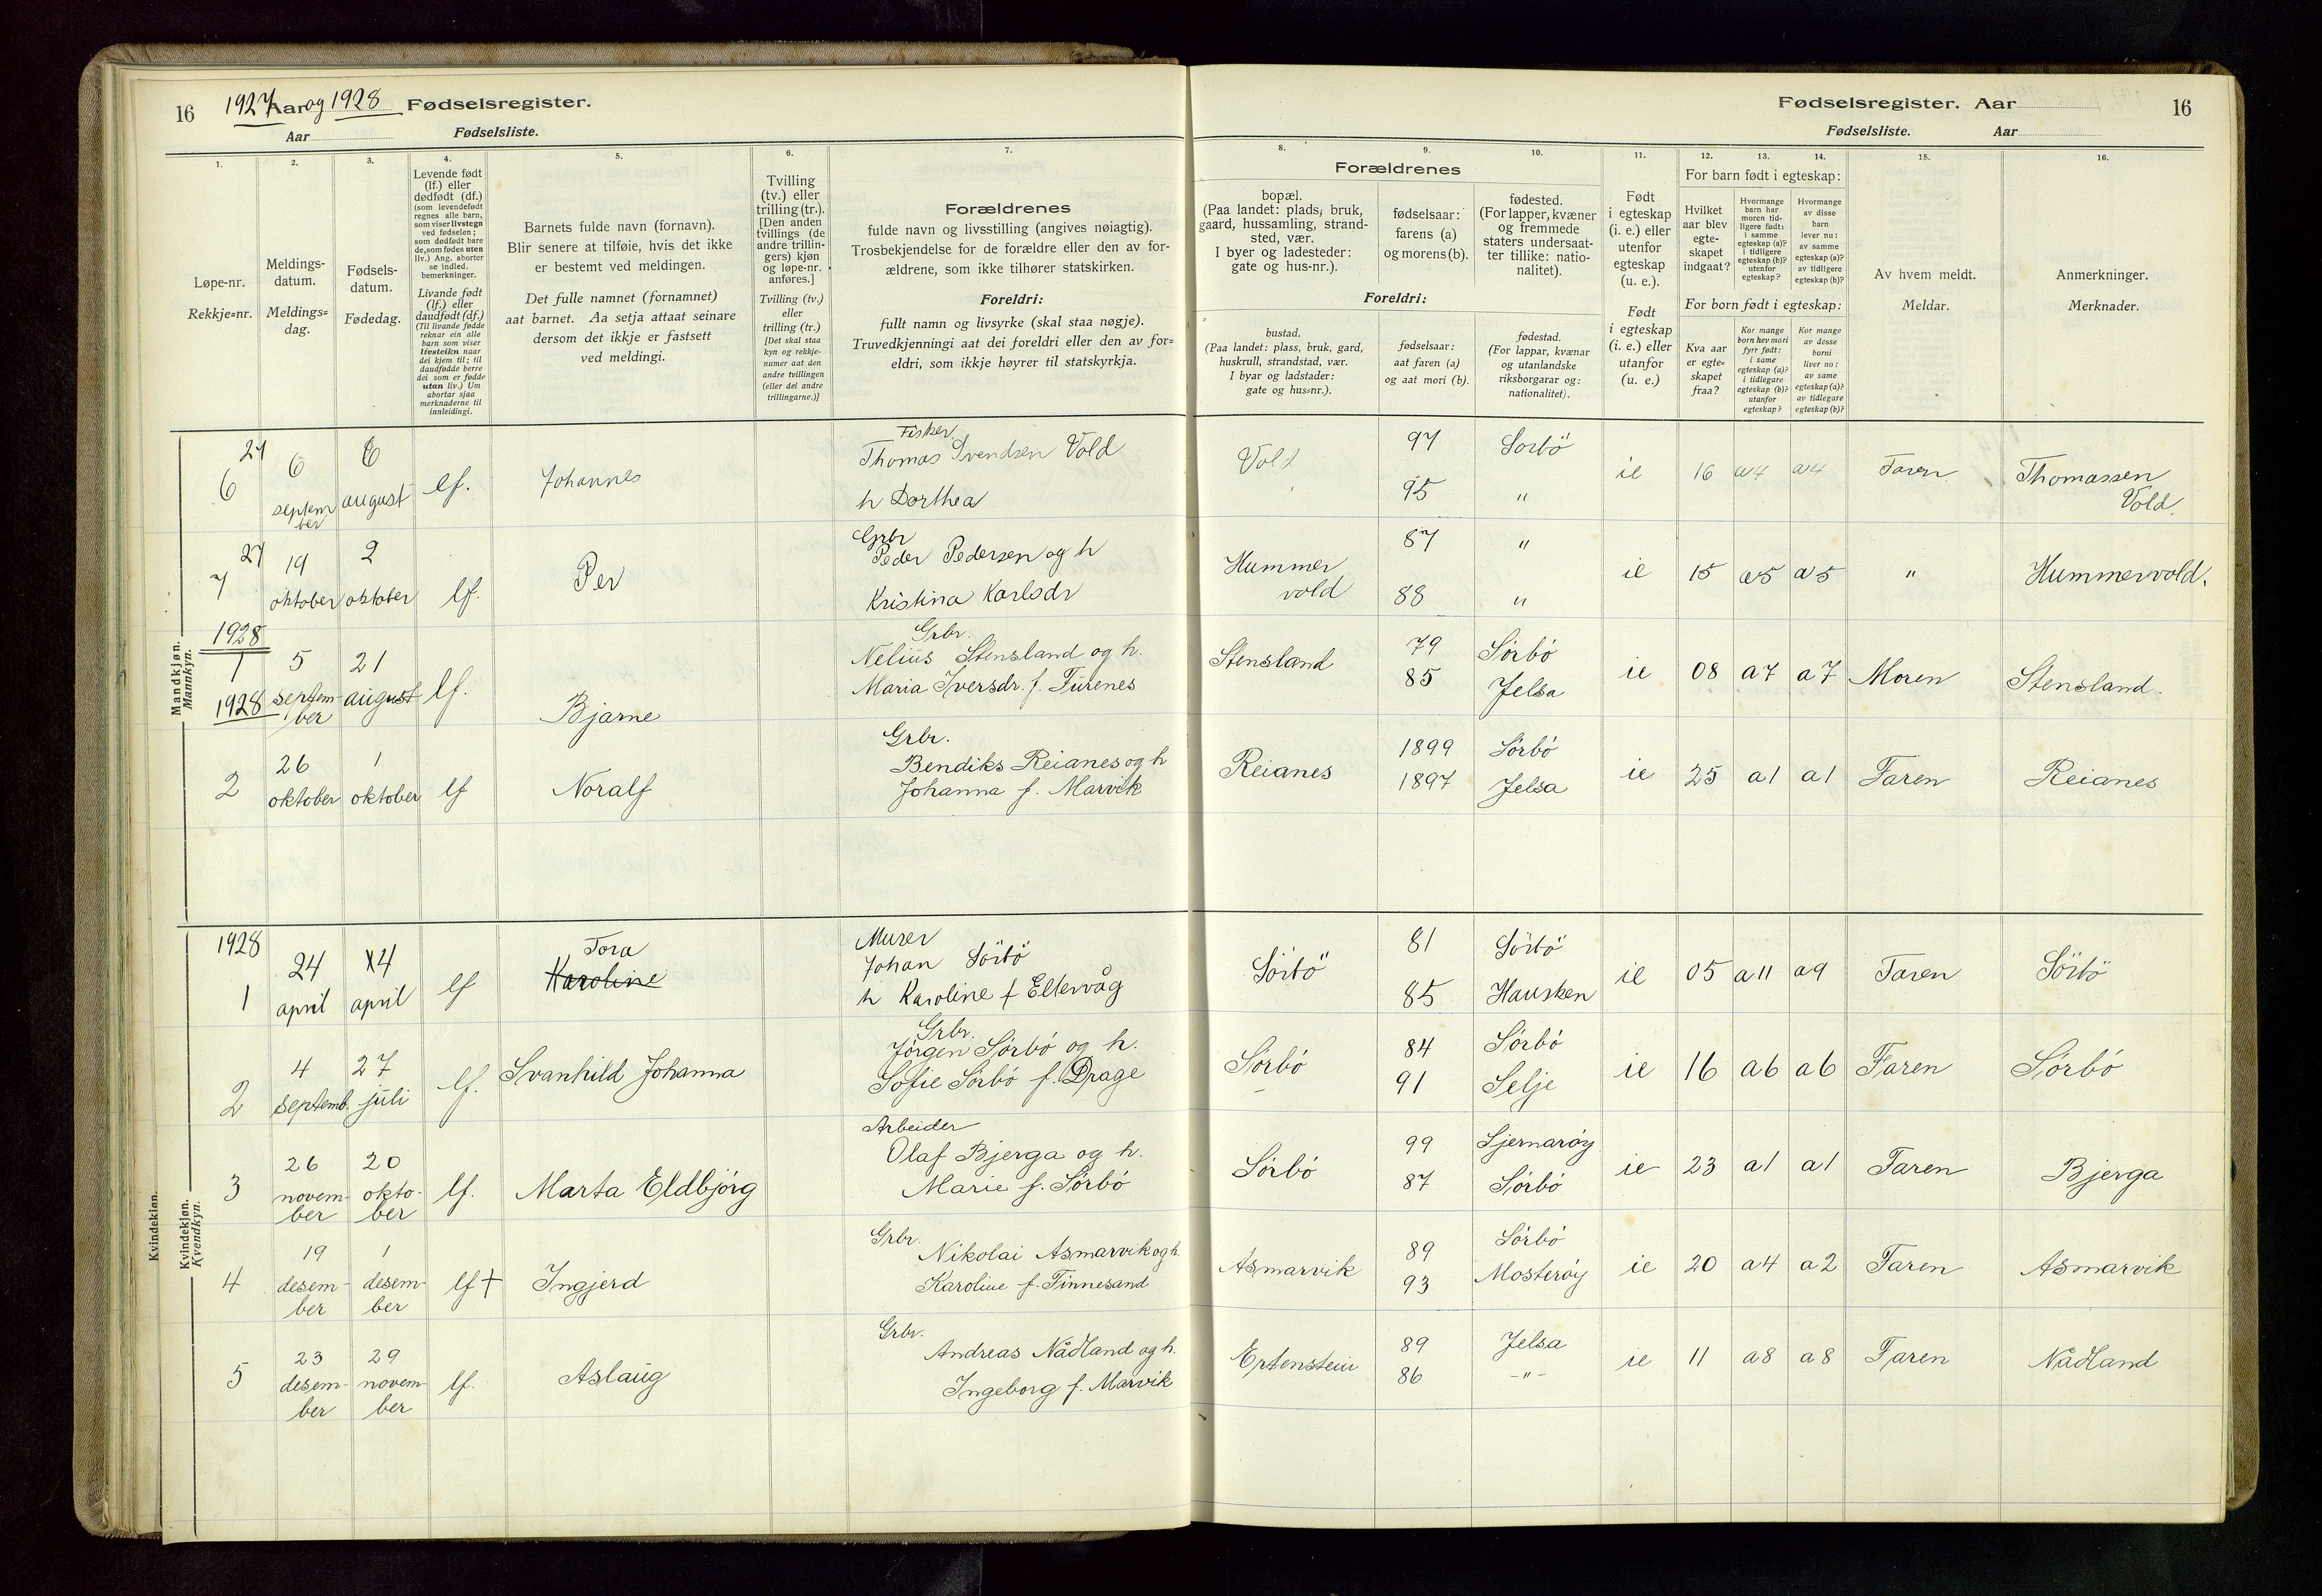 16 1927 Aar og 1928 Fødselsregister.
Aar Fødselsliste.
1.
Løpe-nr.
Rekkje-nr.
2.
Meldings-
datum.
Meldings-
dag.
3.
Fødsels-
datum.
Fødedag.
4.
Levende født
(lf.) eller
dødfødt (df.)
(som levendefødt
regnes alle barn,
som viser livstegn
ved fødselen;
som dødfødt bare
de, som fødes uten
liv.) Ang. aborter
se indled.
bemerkninger.
Livande født
(lf.) eller
daudfødt (df.)
(Til livande fødde
reknar ein alle
barn som viser
livsteikn naar
dei kjem til; til
daudfødde berre
dei som er fødde
utan liv.) Um
abortar sjaa
merknaderne til
innleidingi.
5.
Barnets fulde navn (fornavn).
Blir senere at tilføie, hvis det ikke
er bestemt ved meldingen.
Det fulle namnet (fornamnet)
aat barnet. Aa setja attaat seinare
dersom det ikkje er fastsett
ved meldingi.
6.
Tvilling
(tv.) eller
trilling (tr.).
[Den anden
tvillings (de
andre trillin-
gers) kjøn
og løpe-nr.
anføres.]
Tvilling (tv.)
eller
trilling (tr.)
[Det skal staa
kyn og rekkje-
numer aat den
andre tvillingen
(eller dei andre
trillingarne.)]
7.
Forældrenes
fulde navn og livsstilling (angives nøiagtig).
Trosbekjendelse for de forældre eller den av for-
ældrene, som ikke tilhører statskirken.
Foreldri:
fullt namn og livsyrke (skal staa nøgje).
Truvedkjenningi aat dei foreldri eller den av for-
eldri, som ikkje høyrer til statskyrkja.
Mandkjøn.
Mannkyn.
27
6
6
septem
ber
6
august
lf.
Johannes
Fisker
Thomas Svendsen Vold
h Dorthea
27
7
19
oktober
2
oktober
lf.
Per
Grbr
Peder Pedersen og h
Kristina Karlsdr
1928
1
1928
5
septem-
ber
21
august
lf.
Bjarne
Grbr.
Nelius Stensland og h.
Maria Iversdr. f. Furenes
2
26
oktober
1
oktober
lf
Noralf
Grbr.
Bendiks Reianes og h
Johanna f. Marvik
Kvindekjøn.
Kvindekjøn.
Kvendkyn.
1928
1
24
april
x4
april
lf
Tora
Karoline
Murer
Johan Sörbö
h Karoline f Eltervåg
2
4
septemb.
27
juli
lf.
Svanhild Johanna
Grbr.
Jörgen Sörbö og h.
Sofie Sörbö f. Drage
3
26
novem-
ber
20
okto-
ber
lf.
Marta Eldbjörg
Arbeider
Olaf Bjerga og h.
Marie f. Sörbö
4
19
desem-
ber
1
desem-
ber
lf †
Ingjerd
Grbr.
Nikolai Asmarvik og h.
Karoline f. Finnesand
5
23
desem-
ber
29
novem-
ber
lf.
Aslaug
Grbr.
Andreas Nådland og h.
Ingeborg f. Marvik
Fødselsregister. Aar 16
Fødselsliste. Aar
8.
Forældrenes
bopæl.
(Paa landet: plads, bruk,
gaard, hussamling, strand-
sted, vær.
I byer og ladesteder:
gate og hus-nr.).
Foreldri:
bustad.
(Paa landet: plass, bruk, gard,
huskrull, strandstad, vær.
I byar og ladstader:
gate og hus-nr.).
9.
fødselsaar:
farens (a)
og morens (b).
fødselsaar:
aat faren (a)
og aat mori (b).
10.
fødested.
(For lapper, kvæner
og fremmede
staters undersaat-
ter tillike: natio-
nalitet).
fødestad.
(For lappar, kvænar
og utanlandske
riksborgarar og:
nationalitet).
11.
Født
i egteskap
(i. e.) eller
utenfor
egteskap
(u. e.).
Født
i egteskap
(i. e.) eller
utanfor
(u. e.)
12.
13.
14.
For barn født i egteskap:
Hvilket
aar blev
egte-
skapet
indgaat?
Hvormange
barn har
moren tid-
ligere født:
i samme
egteskap (a)?
i tidligere
egteskap (b)?
utenfor
egteskap?
Hvormange
av disse
barn
lever nu:
av samme
egteskap (a)?
av tidligere
egteskap (b)?
For born født i egteskap:
Kva aar
er egte-
skapet
fraa?
Kor mange
born hev mori
fyrr født:
i same
egteskap (a)?
i tidlegare
egteskap (b)?
utanfor
egteskap?
Kor mange
av desse
borni
liver no:
av same
egteskap (a)?
av tidlegare
egteskap (b)?
15.
Av hvem meldt.
Meldar.
16.
Anmerkninger.
Merknader.
Vold
97
95
Sorbö
"
ie 16 a4 a4 Faren
Thomassen
Vold.
Hummer
vold
87
88
"
"
ie 15 a5 a5 " Hummervold.
Stensland
79
85
Sörbö
Jelsa
ie 08 a7 a7 Moren Stensland.
Reianes
1899
1897
Sörbö
Jelsa
ie 25 a1 a1 Faren Reianes
Sörbö
81
85
Sörbö
Hausken
ie 05 a11 a9 Faren Sörbö
Sörbö
84
91
Sörbö
Selje
ie 16 a6 a6 Faren Sörbö
Sörbö
99
87
Sjernaröy
Sörbö
ie 23 a1 a1 Faren Bjerga
Asmarvik
89
93
Sörbö
Mosteröy
ie 20 a4 a2 Faren Asmarvik
Ertenstein
89
86
Jelsa
-"-
ie 11 a8 a8 Faren Nådland